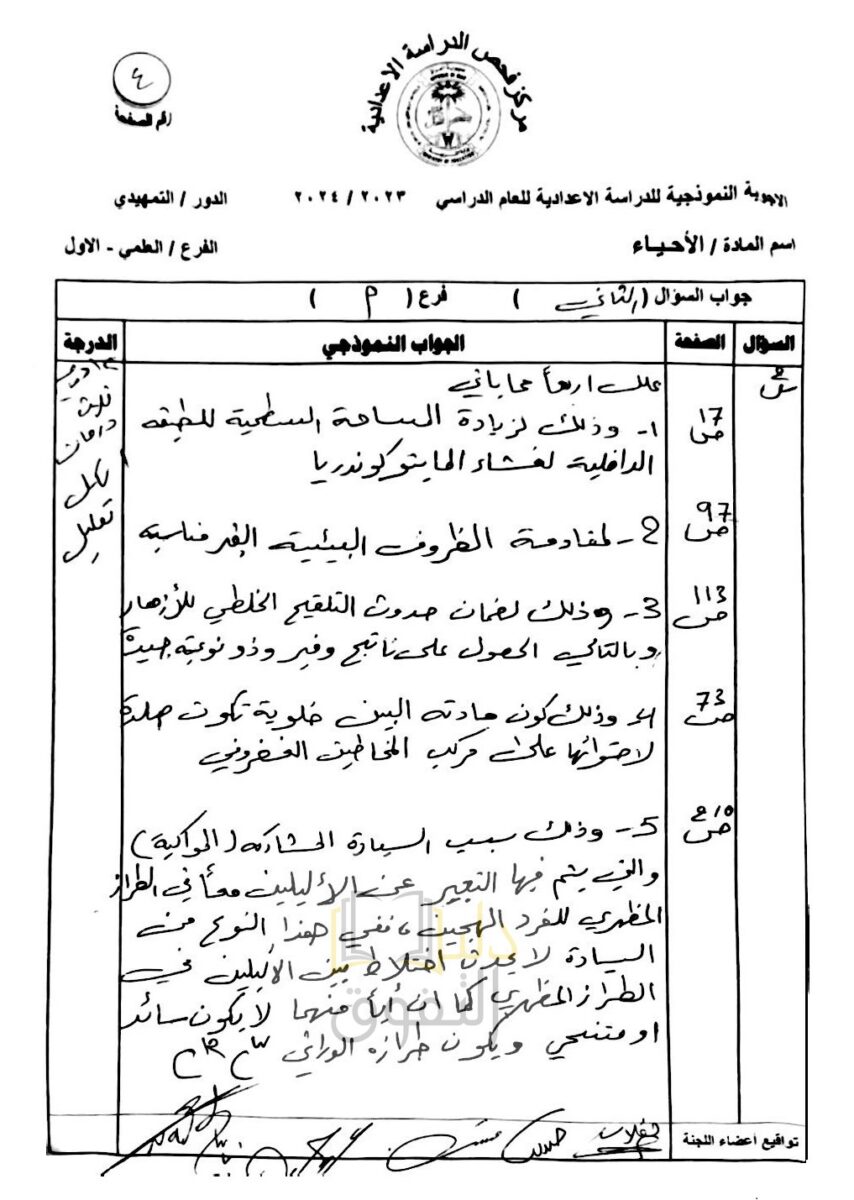 مركز فحص الدراسة الاعدادية
٤
رقم الصفحة
الاجوبة النموذجية للدراسة الاعدادية للعام الدراسي ٢٠٢٣ / ٢٠٢٤ الدور / التمهيدي
اسم المادة / الأحياء الفرع / العلمي - الاول
جواب السؤال ( الثاني ) فرع ( م )
السؤال الصفحة الجواب النموذجي الدرجة
علل اربعاً مما يأتي
ص 17 1- وذلك لزيادة المساحة السطحية للطبقه
الداخلية لغشاء المايتوكوندريا
ثلاث
درجات
لكل
تعليل
ص 97 2- لمقاومة الظروف البيئية الغير مناسبه
ص 113 3- وذلك لضمان حدوث التلقيح الخلطي للأزهار
وبالتالي الحصول على ناتج وفير وذو نوعية جيدة
ص 73 4- وذلك كون مادته البين خلوية تكون صلدة
لاحتوائها على مركب المخاطين الغضروفي
ص 210 5- وذلك بسبب السيادة المشاركه (المواكبة)
والتي يتم فيها التعبير عن الأليلين معاً في الطراز
المظهري للفرد الهجين، ففي هذا النوع من
السيادة لا يحدث اختلاط بين الأليلين في
الطراز المظهري كما ان أياً منهما لا يكون سائد
او متنحي ويكون طرازه الوراثي
دليل
التفوق
تواقيع اعضاء اللجنة